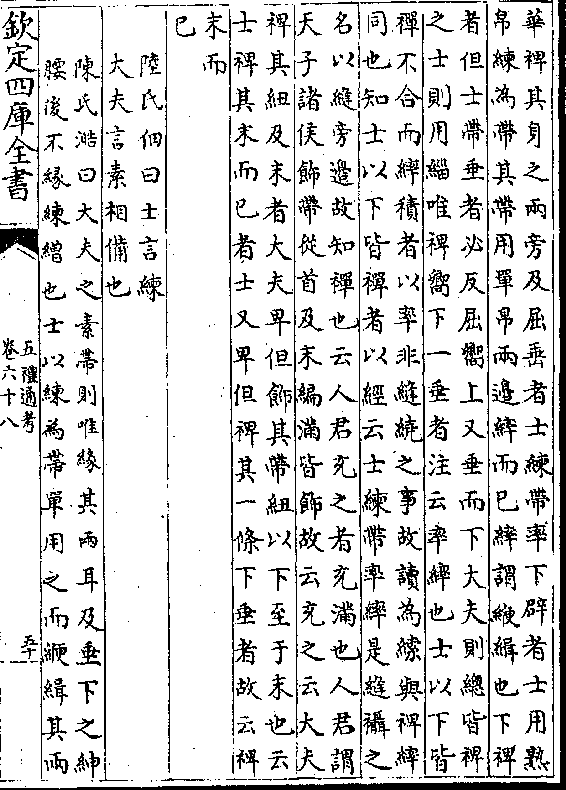 華裨其身之兩旁及屈垂者士練帶率下辟者士用熟
帛練為帶其帶用單帛兩邉繂而已繂謂緶緝也下裨
者但士帶垂者必反屈嚮上又垂而下大夫則總皆裨
之士則用緇唯裨嚮下一垂者注云率繂也士以下皆
禪不合而繂積者以率非縫繞之事故讀為繂與裨繂
同也知士以下皆禪者以經云士練帶率繂是縫襵之
名以縫旁邉故知禪也云人君充之者充滿也人君謂
天子諸侯飾帶從首及末編滿皆飾故云充之云大夫
裨其紐及末者大夫卑但飾其帶紐以下至于末也云
士裨其末而已者士又卑但裨其一條下垂者故云裨
末而
已
陸氏佃曰士言練
大夫言素相備也
陳氏澔曰大夫之素帶則唯緣其兩耳及垂下之紳
腰後不緣練繒也士以練為帶單用之而緶緝其兩
欽定四庫全書
五禮通考
卷六十八
五十